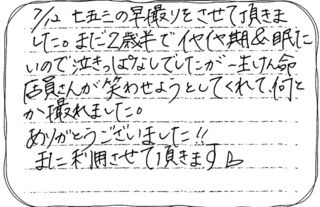 7/12 七五三の早撮りをさせて頂きま
した。まだ2歳半でイヤイヤ期&眠た
いので泣きっぱなしでしたが一生けん命
店員さんが笑わせようとしてくれて、何と
か撮れました。
ありがとうございました!!
また利用させて頂きます